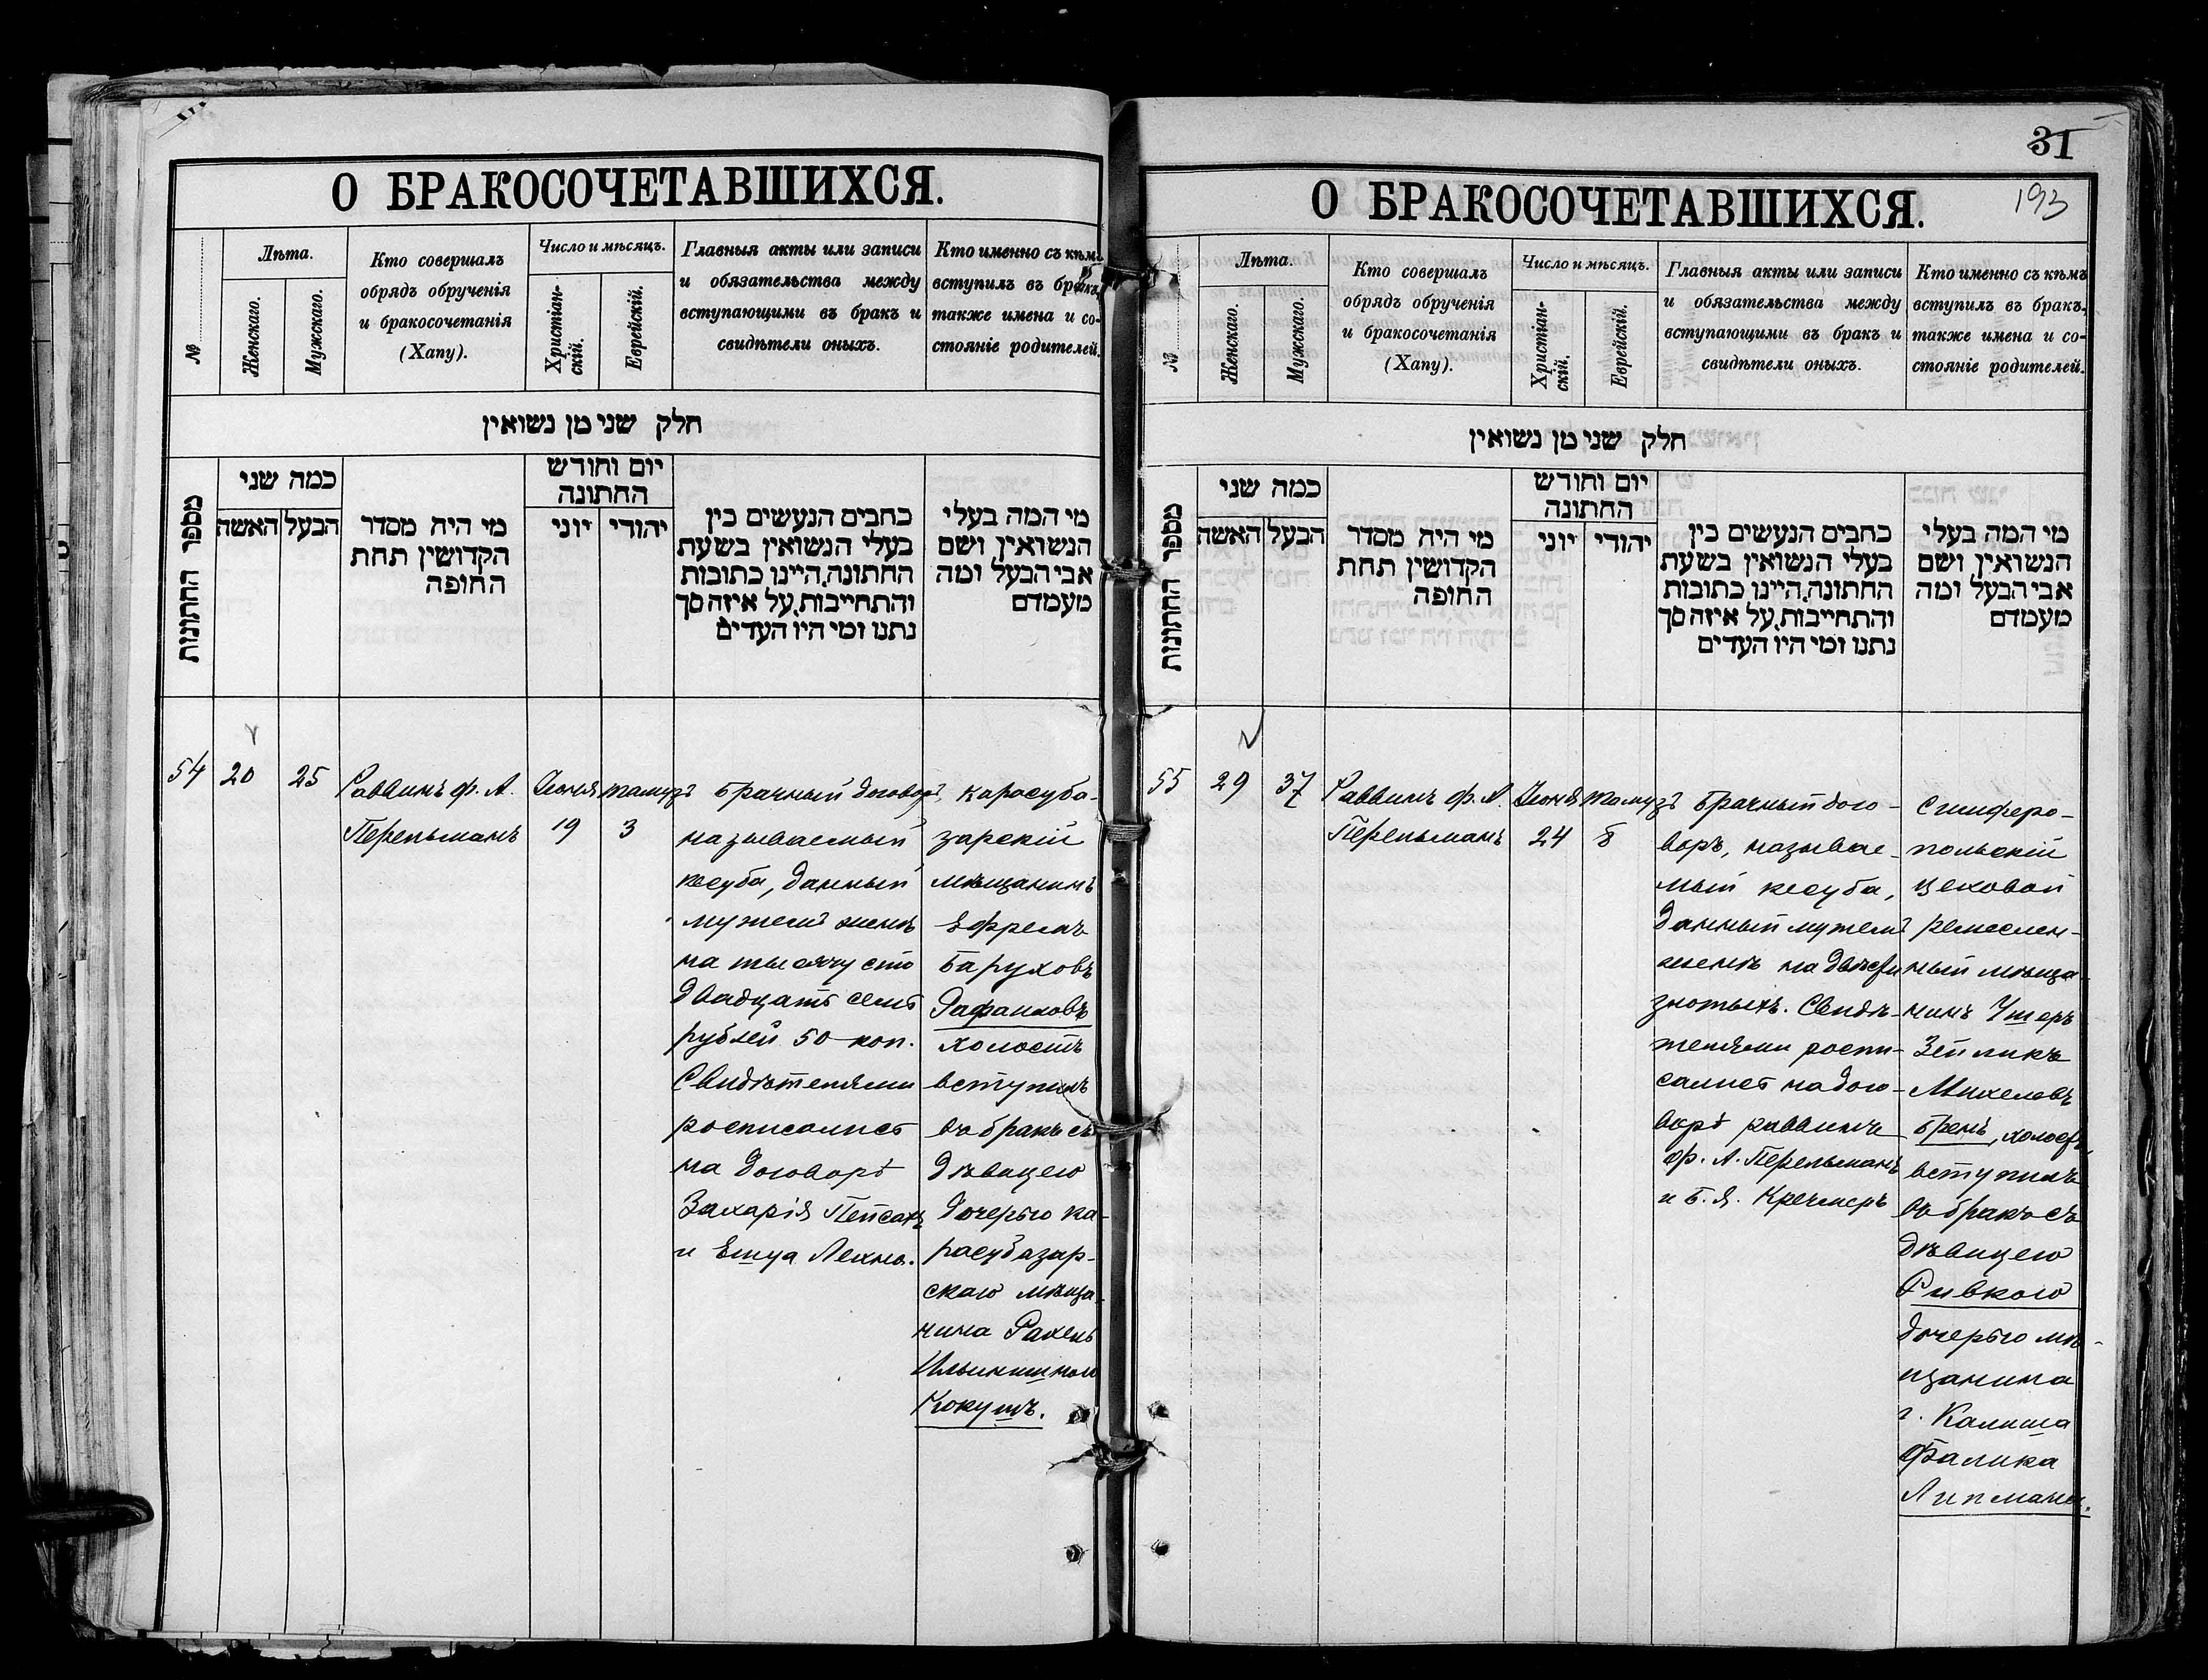 О БРАКОСОЧЕТАВШИХСЯ.
№
Лѣта.
Женскаго.
Мужскаго.
Кто совершалъ
обрядъ обрученія
и бракосочетанія
(Хапу).
Число и мѣсяцъ.
Христіан-
скій.
Еврейскій.
Главныя акты или записи
и обязательства между
вступающими въ бракъ и
свидѣтели оныхъ.
Кто именно съ кѣмъ
вступилъ въ бракъ,
также имена и со-
стояніе родителей.
חלק שני מן נשואין
מספר החתונות
כמה שני
הבעל האשה
מי היה מסדר
הקדושין תחת
החופה
יום וחודש
החתונה
יהודי יוני
כתבים הנעשים בין
בעלי הנשואין בשעת
החתונה, היינו כתובות
והתחייבות, על איזה סך
נתנו ומי היו העדים
מי המה בעלי
הנשואין, ושם
אבי הבעל ומה
מעמדם
54
20
25
Раввинъ ф. А.
Перельманъ
Іюня
19
Тамузъ
3
Брачный договоръ,
называемый
кесуба, данный
мужемъ женѣ
на тысячу сто
двадцать семь
рублей 50 коп.
Свидѣтелями
росписались
на договорѣ
Захарія Пейсахъ
и Ешуа Лехно.
Карасуба-
зарскій
мѣщанинъ
Ефремъ
Баруховъ
Рафаиловъ
холостъ
вступилъ
въ бракъ съ
дѣвицею
дочерью ка-
расубазар-
скаго мѣща-
нина Рахель
Ильинишною
Кокушъ.
31
193
О БРАКОСОЧЕТАВШИХСЯ.
№
Лѣта.
Женскаго.
Мужскаго.
Кто совершалъ
обрядъ обрученія
и бракосочетанія
(Хапу).
Число и мѣсяцъ.
Христіан-
скій.
Еврейскій.
Главныя акты или записи
и обязательства между
вступающими въ бракъ и
свидѣтели оныхъ.
Кто именно съ кѣмъ
вступилъ въ бракъ.
также имена и со-
стояніе родителей.
חלק שני מן נשואין
מספר החתונות
כמה שני
הבעל האשה
מי היה מסדר
הקדושין תחת
החופה
יום וחודש
החתונה
יהודי יוני
כתבים הנעשים בין
בעלי הנשואין בשעת
החתונה, היינו כתובות
והתחייבות, על איזה סך
נתנו ומי היו העדים
מי המה בעלי
הנשואין, ושם
אבי הבעל ומה
מעמדם
55
29
37
Раввинъ ф. А.
Перельманъ
Іюня
24
Тамузъ
8
Брачный дого-
воръ, называе-
мый кесуба,
данный мужемъ
женѣ на двѣсти
злотыхъ. Свидѣ-
телями роспи-
сались на дого-
ворѣ раввинъ
ф. А. Перельманъ
и Б. Я. Кречмеръ
Симферо-
польскій
цеховой
ремеслен-
ный мѣща-
нинъ Ушеръ
Зейликъ
Михелевъ
Бремъ, холостъ,
вступилъ
въ бракъ съ
дѣвицею
Ривкою
дочерью мѣ-
щанина
г. Калиша
Фалика
Липмана.